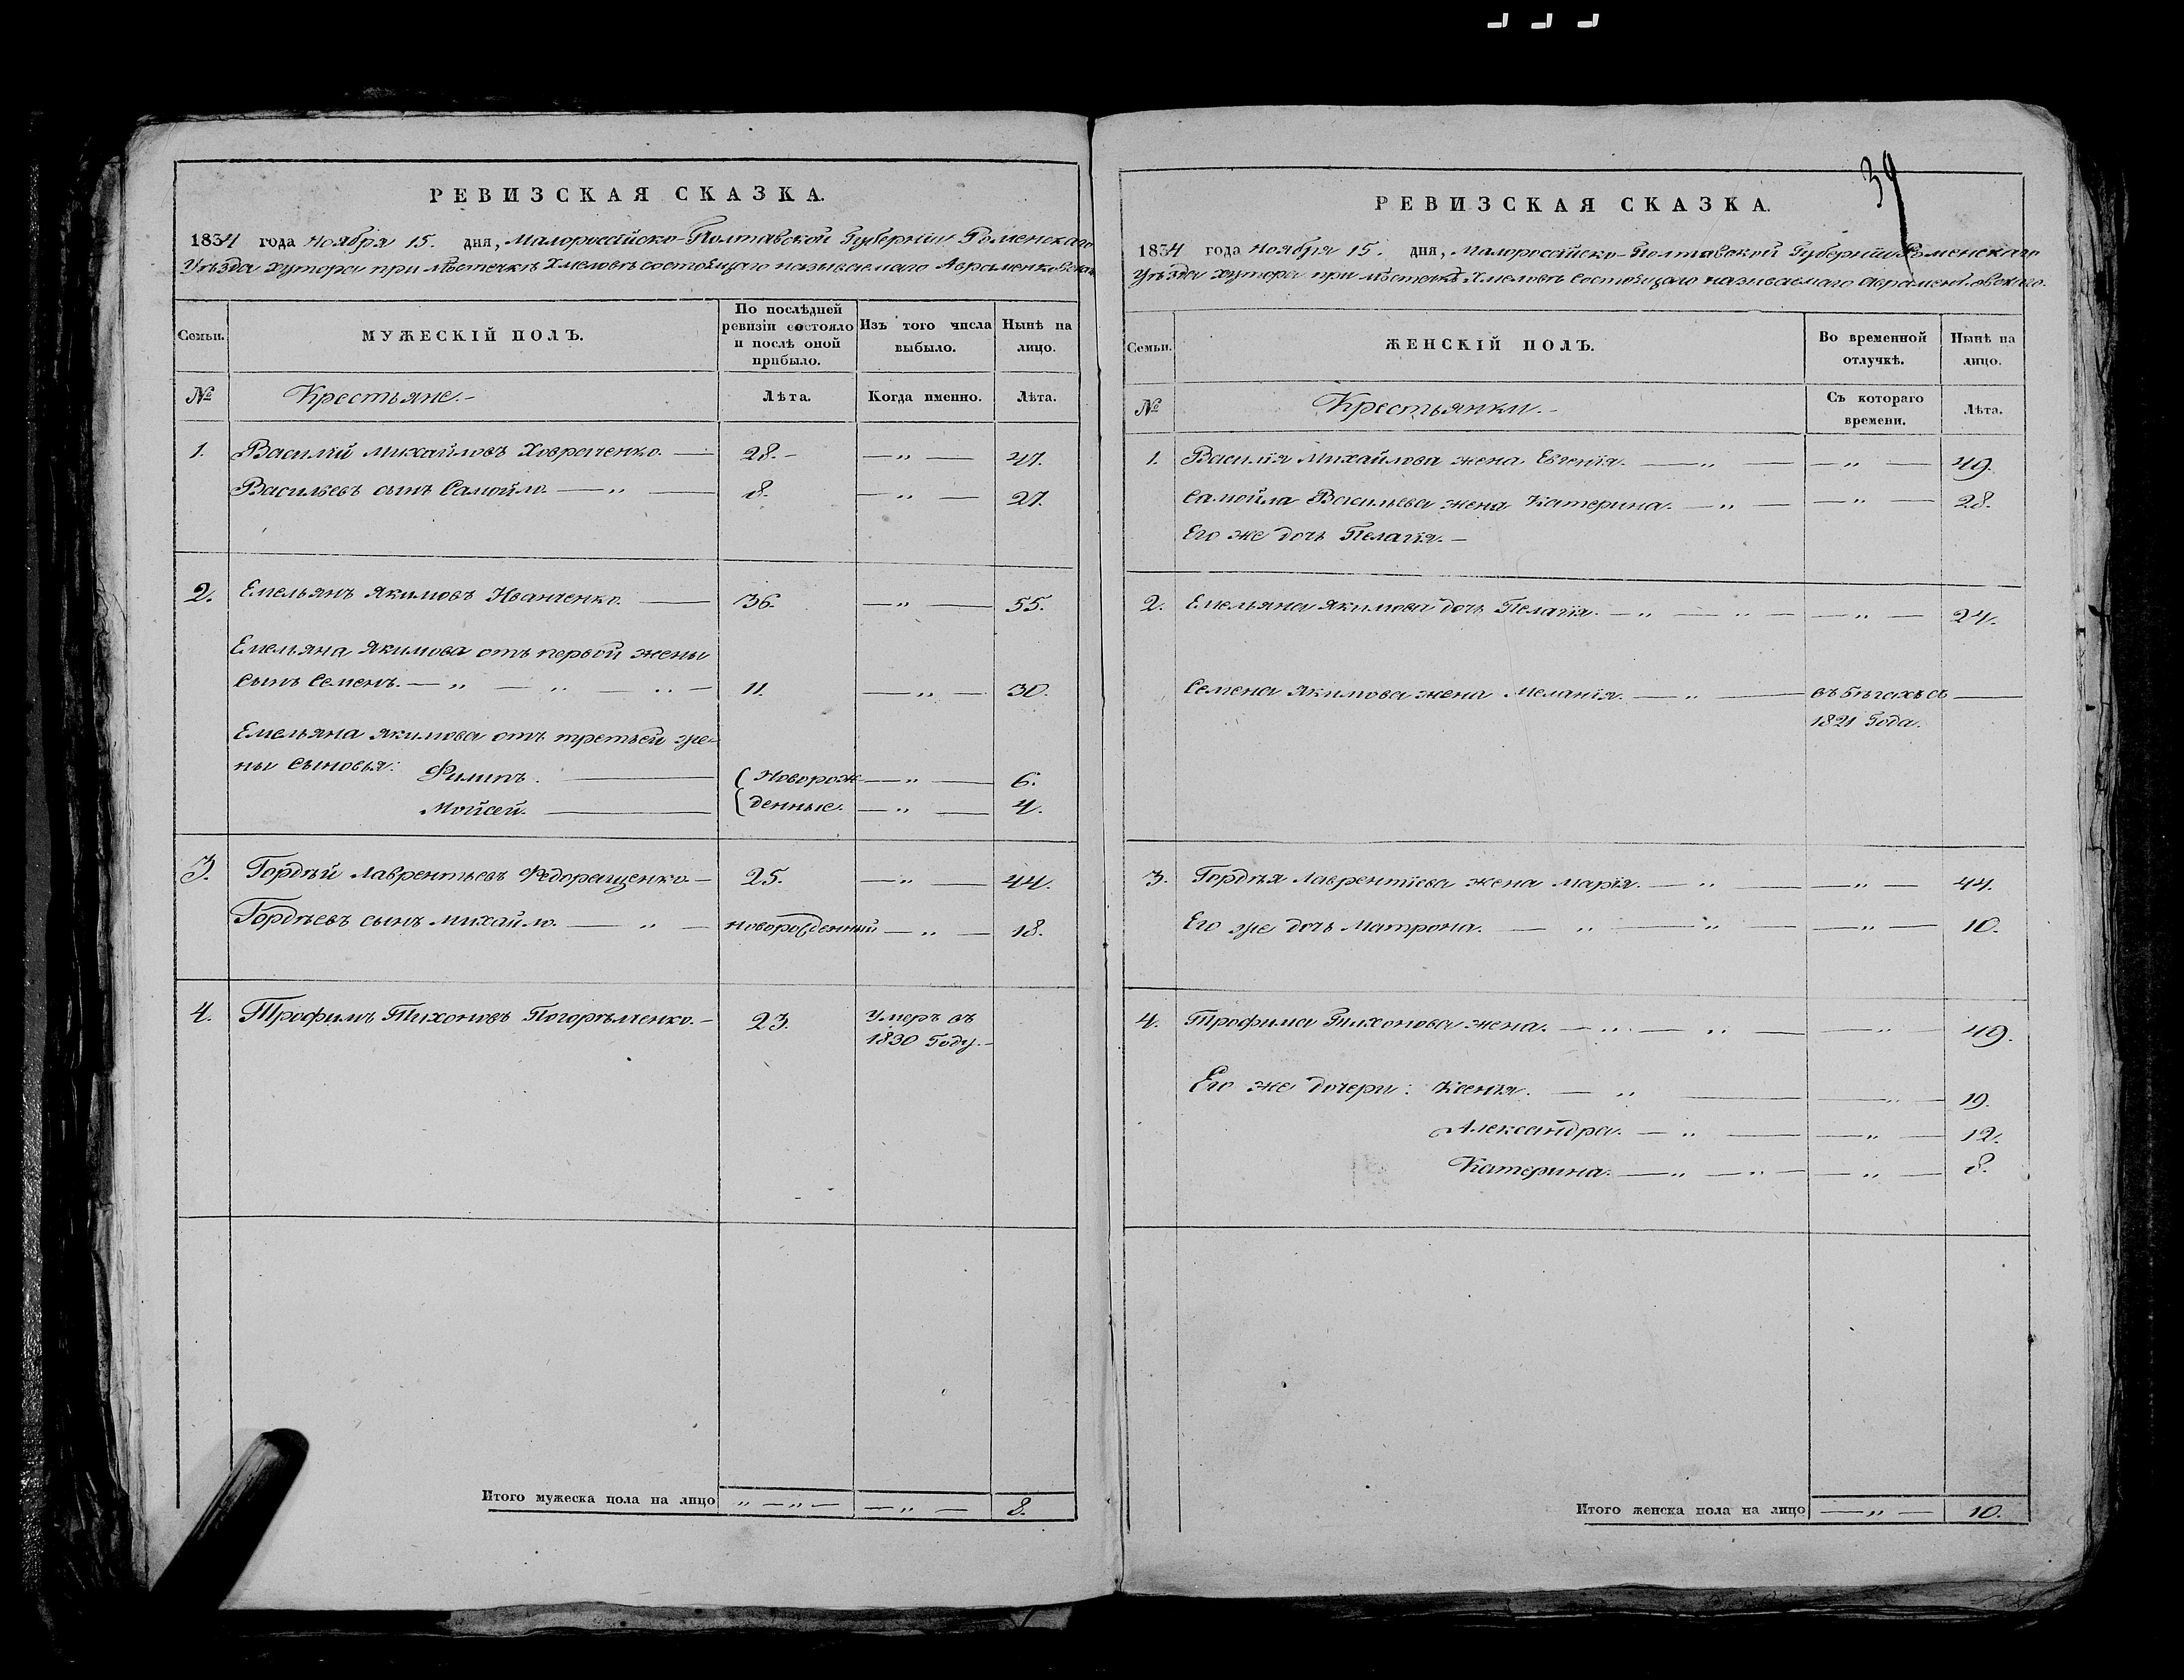 РЕВИЗСКАЯ СКАЗКА.
1834 года Ноября 15. дня, Малороссійско-Полтавской Губерніи Роменскаго
Уѣзда хутора при мѣстечкѣ Хмеловѣ состоящаго называемаго Авраменковскаго
Семьи. МУЖЕСКІЙ ПОЛЪ. По послѣдней ревизіи состояло и послѣ оной прибыло. Изъ того числа выбыло. Нынѣ на лицо.
№ Крестьяне.- Лѣта. Когда именно. Лѣта.
1. Василій Михайловъ Ховраченко. — 28.- — „ — 47.
Васильевъ сынъ Самойло. — „ — 8. — „ — 27.
2. Емельянъ Якимовъ Иванченко. — 36. — „ — 55.
Емельяна Якимова отъ первой жены
сынъ Семенъ. — „ — „ — „ — 11. — „ — 30.
Емельяна Якимова отъ третьей же-
ны сыновья: Филипъ. — Новорож- — „ — 6.
Мойсей. — денные. — „ — 4.
3. Гордѣй Лаврентьевъ Федоращенко. — 25. — „ — 44.
Гордѣевъ сынъ Михайло. — „ — новорожденный — „ — 18.
4. Трофимъ Тихоновъ Погорѣленко. — 23. Умеръ въ
1830 Году.-
Итого мужеска пола на лицо „ — „ — — „ — 8.
34
РЕВИЗСКАЯ СКАЗКА.
1834 года Ноября 15. дня, Малороссійско-Полтавской Губерніи Роменскаго
Уѣзда хутора при мѣстечкѣ Хмеловѣ состоящаго называемаго Авраменковскаго.
Семьи. ЖЕНСКІЙ ПОЛЪ. Во временной отлучкѣ. Нынѣ на лицо.
№ Крестьянки.- Съ котораго времени. Лѣта.
1. Василія Михайлова жена Евгенія. — „ — — „ — 49.
Самойла Васильева жена Катерина. — „ — — „ — 28.
Его же дочь Пелагія. —
2. Емельяна Якимова дочь Пелагія. — „ — „ — — „ — 24.
Семена Якимова жена Меланія. — „ — въ бѣгахъ съ —
1821 Года.
3. Гордѣя Лаврентіева жена Марія. — „ — — „ — 44.
Его же дочь Матрона. — „ — „ — — „ — 10.
4. Трофима Тихонова жена. — „ — „ — — „ — 49.
Его же дочери: Ксенія. — „ — — „ — 19.
Александра. — „ — — „ — 12.
Катерина. — „ — „ — — „ — 8.
Итого женска пола на лицо — „ — 10.